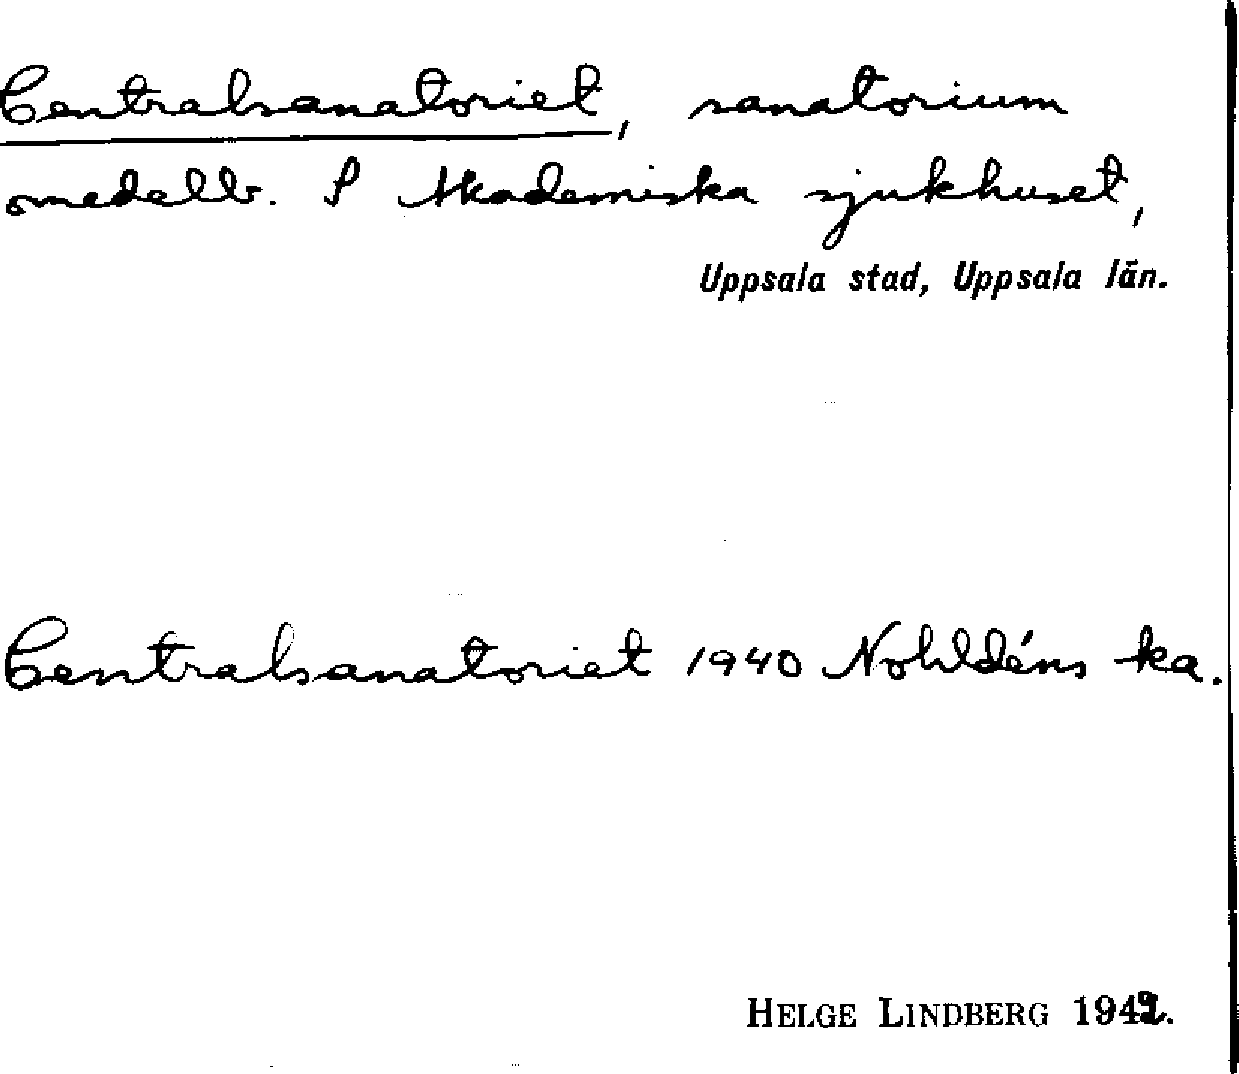 Centralsanatoriet, sanatorium
omedelb. S Akademiska sjukhuset,
Uppsala stad, Uppsala län.
Centralsanatoriet 1940 Nohldéns ka.
HELGE LINDBERG